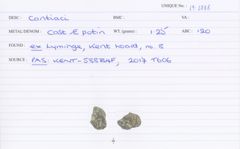 UNIQUE No:
DESC: Cantiaci BMC: VA:
METAL/DENOM: Cast Æ potin WT. (grams): 1.25 ABC: 120
FOUND: ex Lyminge, Kent hoard, no. 8
SOURCE: PAS: KENT-588B4F, 2017 T606